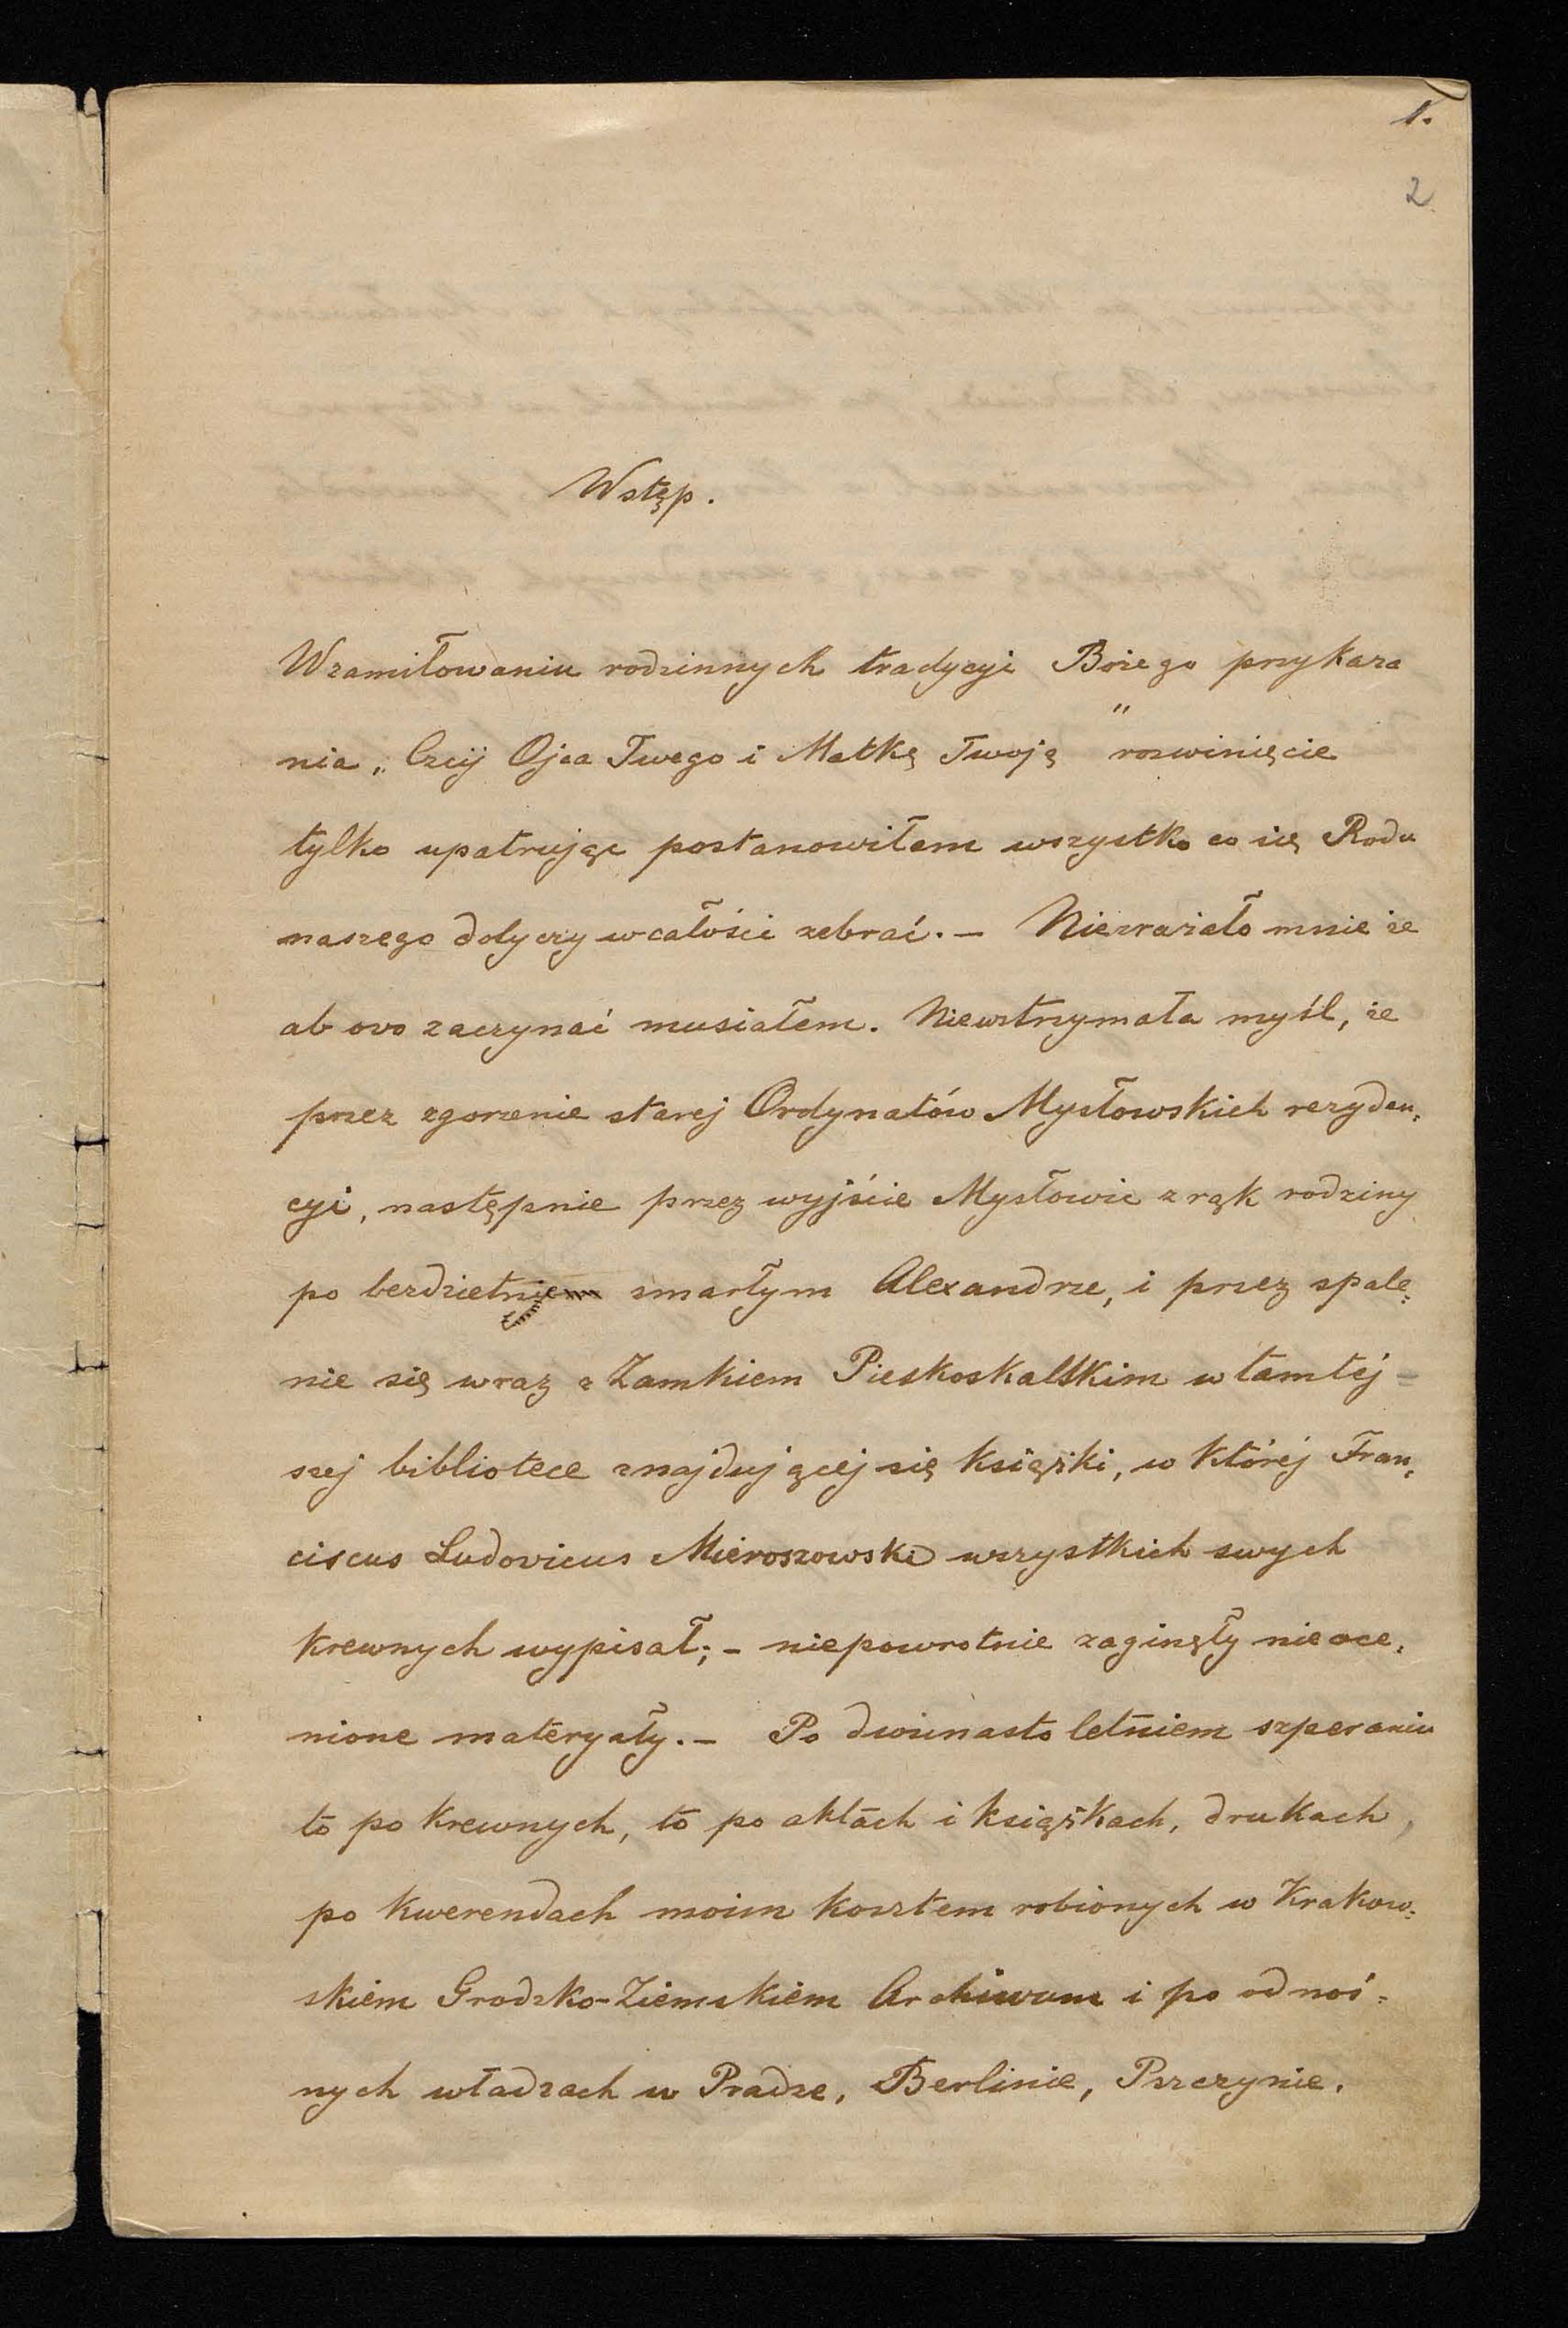 1.
2
Wstęp.
Wzamiłowaniu rodzinnych tradycyi Bożego przykaza
nia „Czcij Ojca Twego i Matkę Twoję" rozwinięcie
tylko upatrując postanowiłem wszystko co się Rodu
naszego dotyczy wcałości zebrać. – Niezrażało mnie że
ab ovo zaczynać musiałem. Niewstrzymała myśl, że
przez zgorzenie starej Ordynatów Mysłowskich rezyden:
cyi, następnie przez wyjście Mysłowic z rąk rodziny
po bezdzietnie zmarłym Alexandrze, i przez spale:
nie się wraz z Zamkiem Pieskoskalskim w tamtéj=
szej bibliotece znajdującej się książki, w któréj Fran:
ciscus Ludovicus Mieroszowski wszystkich swych
krewnych wypisał; – niepowrotnie zaginęły nieoce:
nione materyały. – Po dwunasto letniem szperaniu
to po krewnych, to po aktach i książkach, drukach,
po kwerendach moim kosztem robionych w Krakow:
skiem Grodzko-Ziemskiem Archiwum i po odnoś:
nych władzach w Pradze, Berlinie, Pszczynie,